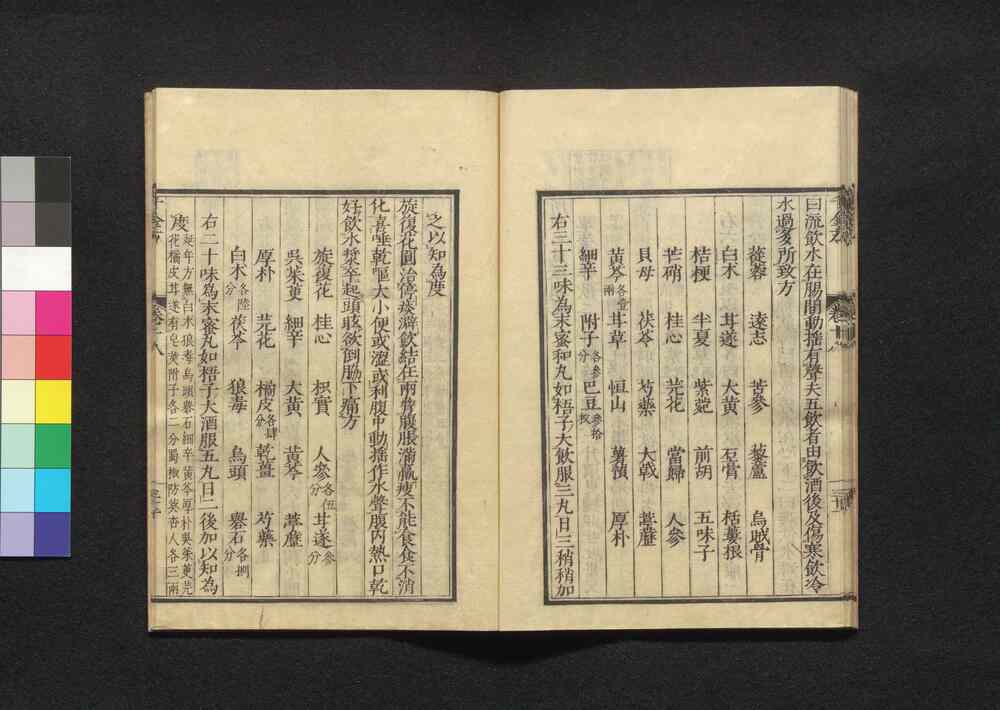 曰流飲水在腸間動揺有聲夫五飲者由飲酒後及傷寒飲冷
水過多所致方
蓯蓉 遠志 苦參 藜蘆 烏賊骨
白术 甘遂 大黄 石膏 栝蔞根
桔梗 半夏 紫菀 前胡 五味子
芒硝 桂心 芫花 當歸 人參
貝母 茯苓 芍藥 大戟 葶藶
黄芩各壹兩 甘草 恒山 薯蕷 厚朴
細辛 附子各參分 巴豆參拾枚
右三十三味為末蜜和丸如梧子大飲服三丸日三稍稍加
之以知為度
旋復花圓治停痰澼飲結在兩脅腹脹滿羸瘦不能食食不消
化喜唾乾嘔大小便或澀或利腹中動揺作水聲腹内熱口乾
好飲水漿卒起頭眩欲倒脇下痛方
旋復花 桂心 枳實 人參各伍分 甘遂參分
吳茱萸 細辛 大黄 黄芩 葶藶
厚朴 芫花 橘皮各肆分 乾薑 芍藥
白术各陸分 茯苓 狼毒 烏頭 礬石各捌分
右二十味為末蜜丸如梧子大酒服五丸日二後加以知為
度延年方無白术狼毒烏頭礬石細辛黄芩厚朴吳茱萸芫
花橘皮甘遂有皂莢附子各二分蜀椒防葵杏人各三兩